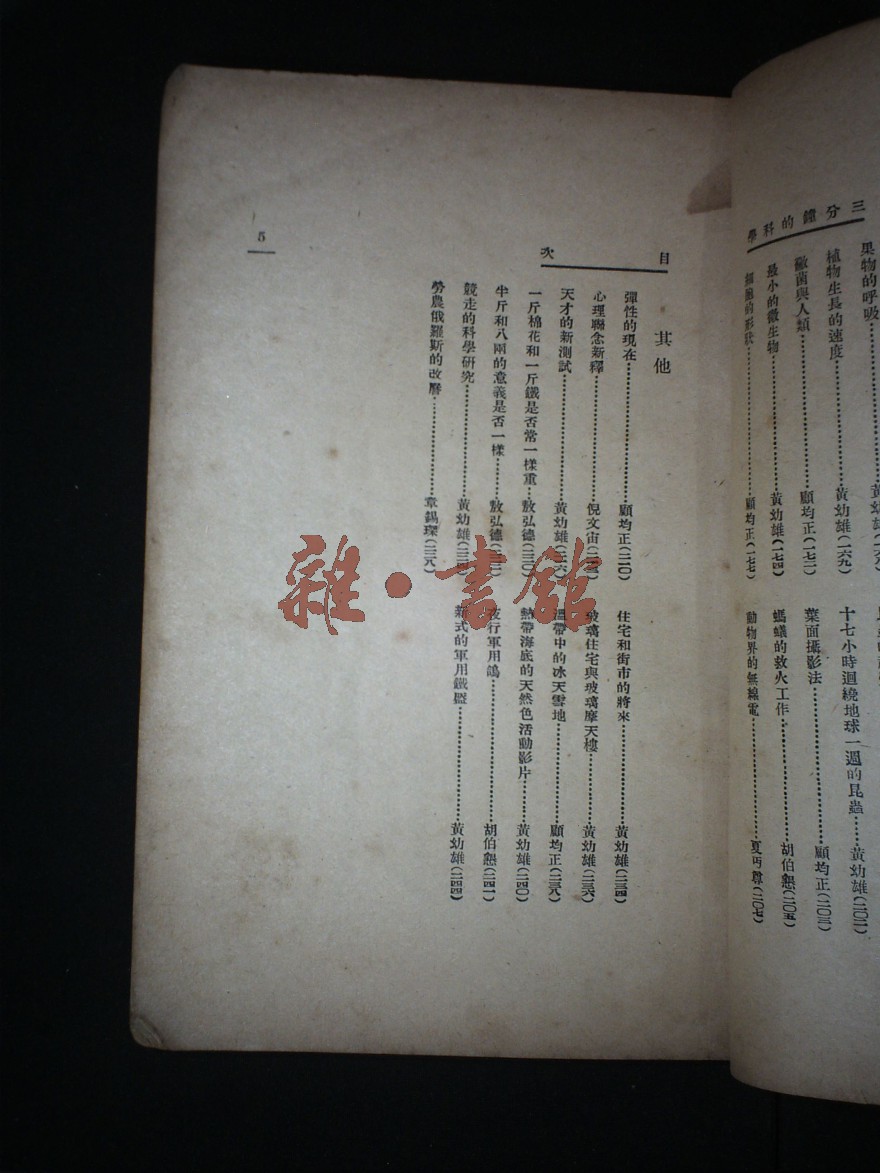 三分鐘的科學
果物的呼吸
植物生長的速度………黃幼雄(一六九)
黴菌與人類………顧均正(一七二)
最小的微生物………黃幼雄(一七四)
細胞的形狀………顧均正(一七七)
十七小時迴繞地球一週的昆蟲……黃幼雄(二〇二)
葉面攝影法………顧均正(二〇三)
螞蟻的救火工作………胡伯懇(二〇五)
動物界的無線電………夏丏尊(二〇七)
目次
其他
彈性的現在………顧均正(二一〇)
心理聯念新釋………倪文宙
天才的新測試………黃幼雄
一斤棉花和一斤鐵是否常一樣重…敖弘德
半斤和八兩的意義是否一樣……敖弘德
競走的科學研究………黃幼雄
勞農俄羅斯的改曆………章錫琛
住宅和街市的將來………黃幼雄(二三四)
玻璃住宅與玻璃摩天樓………黃幼雄(二三六)
溫帶中的冰天雪地………顧均正(二三八)
熱帶海底的天然色活動影片……黃幼雄(二四〇)
夜行軍用鴿………胡伯懇(二四一)
新式的軍用鐵盔………黃幼雄(二四四)
5
雜·書館